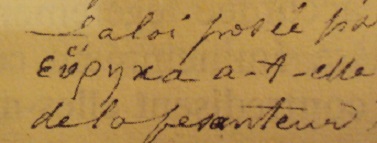 La loi posée pa
εὕρηκα a-t-elle
de la pesanteur